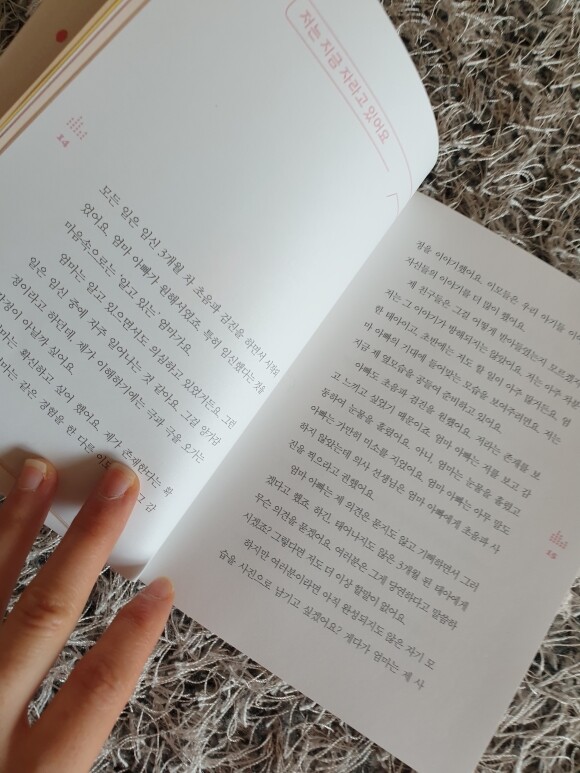 저는 지금 자라고 있어요
14
모든 일은 임신 3개월 차 초음파 검진을 하면서 시작되
었어요. 엄마 아빠가 원해서였죠. 특히 임신했다는 것을
마음속으로는 '알고 있는' 엄마가요.
엄마는 알고 있으면서도 의심하고 있었거든요. 그런
일은 임신 중에 자주 일어나는 것 같아요. 그걸 양가감
정이라고 하던데, 제가 이해하기에는 극과 극을 오가는
감정이 아닐까 싶어요.
엄마는 확신하고 싶어 했어요. 제가 존재한다는 확
같은 경험을 한 다른
정을 이야기했어요. 이모들은 우리 아기를
자신들의 이야기를 더 많이 했어요.
제 친구들은 그걸 어떻게 받아들였는지 모르겠지
저는 그 이야기가 방해되지는 않았어요. 저는 아주
한 태아이고, 초반에는 저도 할 일이 아주 많거든요. 엄
마 아빠의 기대에 들어맞는 모습을 보여주려면요. 저는
지금 제 옆모습을 공들여 준비하고 있어요.
아빠도 초음파 검진을 원했어요. 저라는 존재를 보
고 느끼고 싶었기 때문이죠. 엄마 아빠는 저를 보고 감
동하여 눈물을 흘렸어요. 아니, 엄마는 눈물을 흘렸고
아빠는 가만히 미소를 지었어요. 엄마 아빠는 아무 말도
하지 않았는데 의사 선생님은 엄마 아빠에게 초음파 사
진을 찍으라고 권했어요.
엄마 아빠는 제 의견은 묻지도 않고 기뻐하면서 그러
겠다고 했죠. 하긴, 태어나지도 않은 3개월 된 태아에게
무슨 의견을 묻겠어요. 여러분은 그게 당연하다고 말씀하
시겠죠? 그렇다면 저도 더 이상 할말이 없어요.
하지만 여러분이라면 아직 완성되지도 않은 자기 모
습을 사진으로 남기고 싶겠어요? 게다가 엄마는 제 사
15